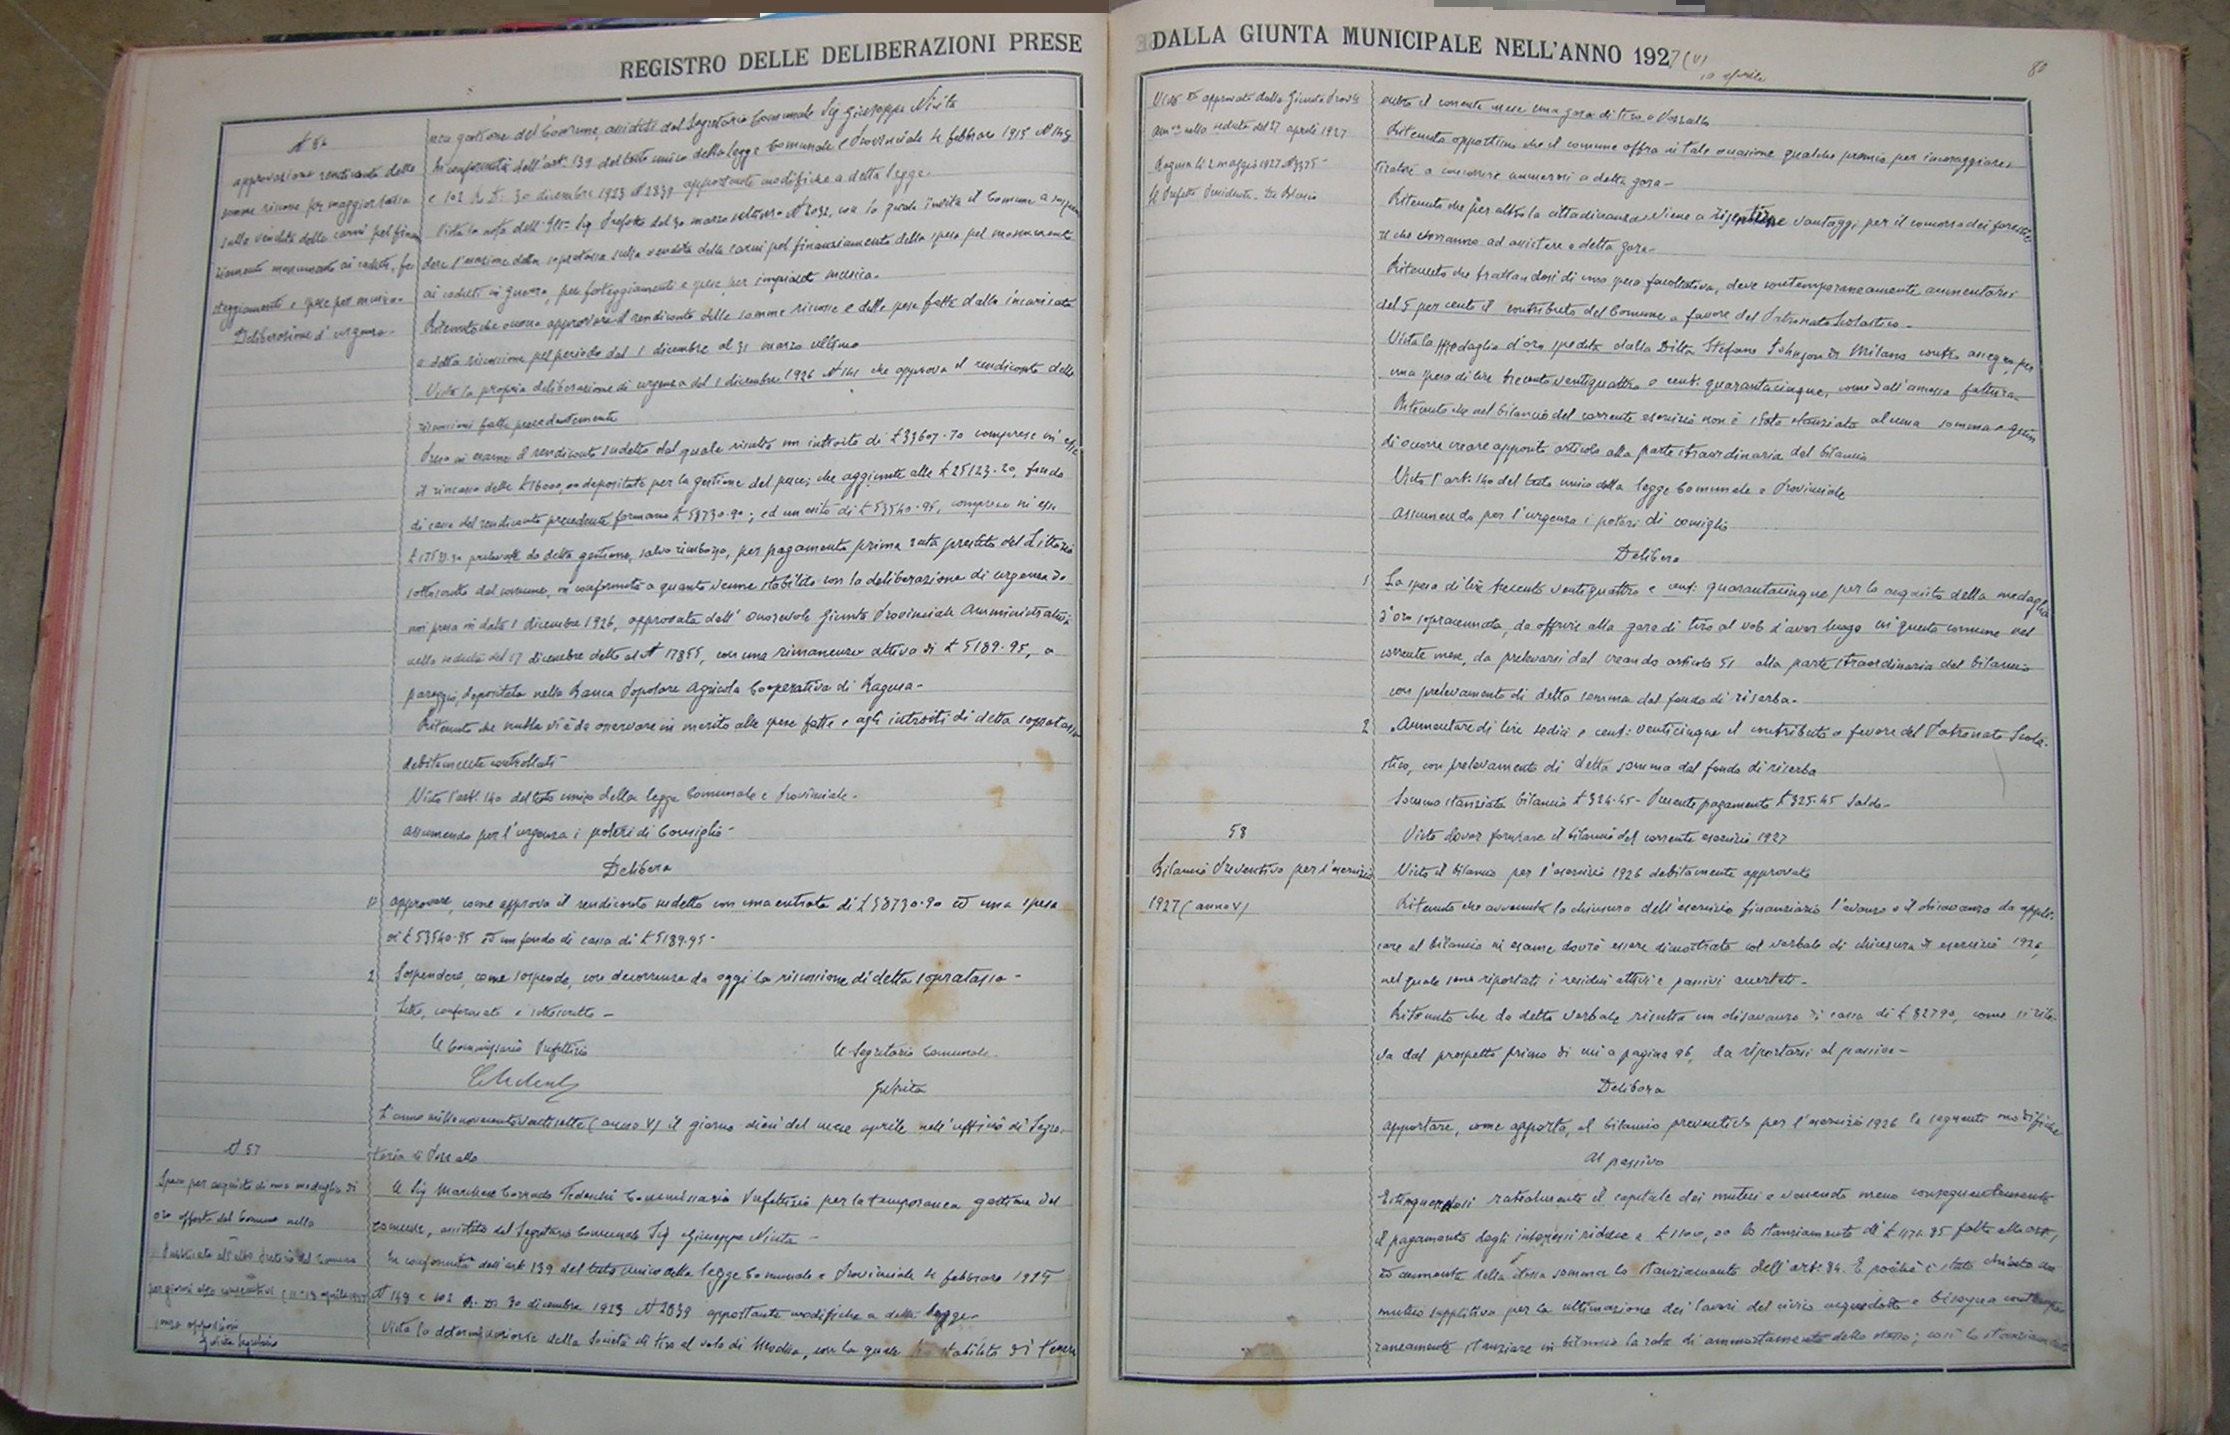 REGISTRO DELLE DELIBERAZIONI PRESE
N 56
approvazione rendiconto delle
somme riscosse per maggior tassa
sulla vendita delle carni pel finan
ziamento monumento ai caduti, fe
steggiamenti e spese per musica-
Deliberazione d'urgenza-
nea gestione del Comune, assistito dal Segretario Comunale Sig Giuseppe Nicita
In conformità dell'art. 139 del testo unico della legge Comunale e Provinciale 4 febbraio 1915 N 148
e 102 R. D. 30 dicembre 1923 N 2839 apportante modifiche a detta legge.
Vista la nota dell' Ill= Sig Prefetto del 30 marzo ultimo N 2032, con la quale invita il Comune a sospen
dere l'esazione della sopratassa sulla vendita delle carni pel finanziamento della spesa pel monumento
ai caduti in guerra, per festeggiamenti e spese per musica.
Ritenuto che occorre approvare il rendiconto delle somme riscosse e delle spese fatte dallo incaricato
a detta riscossione pel periodo dal 1 dicembre al 31 marzo ultimo
Vista la propria deliberazione di urgenza del 1 dicembre 1926 N 141 che approva il rendiconto delle
riscossioni fatte precedentemente
Preso in esame il rendiconto sudetto dal quale risulta un introito di £ 33607.70 comprese in esse
il rincasso delle £ 16000,00 depositate per la gestione del pesce; che aggiunte alle £ 25123.20, fondo
di cassa del rendiconto precedente formano £ 58730.90; ed un esito di £ 53540.95, comprese in esse
prelevate da detta gestione, salvo rimborso, per pagamento prima rata prestito del Littorio
sottoscritto dal comune, in conformità a quanto venne stabilito con la deliberazione di urgenza da
noi presa in data 1 dicembre 1926, approvata dall' Onorevole Giunta Provinciale Amministrativa
nella seduta del 17 dicembre detto al N 17855, con una rimanenza attiva di £ 5189.95, a
pareggio, depositata nella Banca Popolare Agricola Cooperativa di Ragusa-
Ritenuto che nulla vi è da osservare in merito alle spese fatte e agli introiti di detta sopratassa
debitamente controllati-
Visto l'art. 140 del testo unico della legge Comunale e Provinciale-
assumendo per l'urgenza i poteri di Consiglio-
Delibera
1° approvare, come approva il rendiconto sudetto con una entrata di £ 58730.90 ed una spesa
di £ 53540.95 ed un fondo di cassa di £ 5189.95-
2 Sospendere, come sospende, con decorrenza da oggi la riscossione di detta sopratassa-
Letto, confermato e sottoscritto-
Il Commissario Prefettizio
Il Segretario Comunale-
GNicita
N 57
Spesa per acquisto di una medaglia di
oro offerta dal Comune nella
Pubblicata all'albo Pretorio del Comune
senza opposizioni
L'anno millenovecentoventisette (anno V) il giorno dieci del mese aprile nell'ufficio di Segre-
teria di Pozzallo
Il Sig Marchese Corrado Tedeschi Commissario Prefettizio per la temporanea gestione del
comune, assistito dal Segretario Comunale Sig Giuseppe Nicita-
In conformità dell'art 139 del testo unico della legge Comunale e Provinciale 4 febbraio 1915
N 148 e 102 R. D. 30 dicembre 1923 N 2839 apportante modifiche a detta legge-
Vista la determinazione della Società di tiro al volo di Modica, con la quale ha stabilito di tenere
DALLA GIUNTA MUNICIPALE NELL'ANNO 1927 (V)
10 aprile
80
Visto ed approvato dalla Giunta Prov.le
Amm.va nella seduta del 27 aprile 1927
Ragusa li 2 maggio 1927 N 9375-
Il Prefetto Presidente-
entro il corrente mese una gara di tiro a Pozzallo
Ritenuto opportuno che il comune offra in tale occasione qualche premio per incoraggiare i
tiratori a concorrere numerosi a detta gara-
Ritenuto che per altro la cittadinanza viene a risentire vantaggi per il concorso dei forestie
ri che verranno ad assistere a detta gara-
Ritenuto che trattandosi di una spesa facoltativa, deve contemporaneamente aumentarsi
del 5 per cento il contributo del Comune a favore del Patronato Scolastico-
Vista la medaglia d'oro spedita dalla Ditta Stefano Johnson di Milano contro assegno, per
una spesa di lire trecentoventiquattro e cent: quarantacinque, come dall'annessa fattura-
Ritenuto che nel bilancio del corrente esercizio non è stata stanziata alcuna somma e quin
di occorre creare apposito articolo alla parte straordinaria del bilancio
Visto l'art: 140 del testo unico della legge Comunale e Provinciale
assumendo per l'urgenza i poteri di consiglio
Delibera
1 La spesa di lire trecentoventiquattro e cent: quarantacinque per lo acquisto della medaglia
d'oro sopracennata, da offrire alla gara di tiro al volo d'aver luogo in questo comune nel
corrente mese, da prelevarsi dal creando articolo 51 alla parte straordinaria del bilancio
con prelevamento di detta somma dal fondo di riserba-
2 Aumentare di lire sedici e cent: venticinque il contributo a favore del Patronato Scola-
stico, con prelevamento di detta somma dal fondo di riserba
Somma stanziata bilancio £ 324.45- Presente pagamento £ 325.45 Saldo-
58
Bilancio Preventivo per l'esercizio
1927 (anno V)
Visto dover formare il bilancio del corrente esercizio 1927
Visto il bilancio per l'esercizio 1926 debitamente approvato
Ritenuto che avvenuta la chiusura dell'esercizio finanziario l'avanzo o il disavanzo da appli-
care al bilancio in esame dovrà essere dimostrato col verbale di chiusura di esercizio 1926,
nel quale sono riportati i residui attivi e passivi accertati-
Ritenuto che da detto verbale risulta un disavanzo di cassa di £ 8279, come si rile-
va dal prospetto primo di cui a pagina 96, da riportarsi al passivo-
Delibera
apportare, come apporta, al bilancio preventivo per l'esercizio 1926 le seguenti modifiche
Al passivo
Estinguendosi ratealmente il capitale dei mutui e venendo meno conseguentemente
il pagamento degli interessi riduce a £ 1100,00 lo stanziamento di £ 1171.85 fatto allo art,
ed aumenta della stessa somma lo stanziamento dell'art: 84. E poiché è stato chiesto un
mutuo suppletivo per la ultimazione dei lavori del civico acquedotto e bisogna contempo
raneamente stanziare in bilancio la rata di ammortamento dello stesso; così lo stanziamento